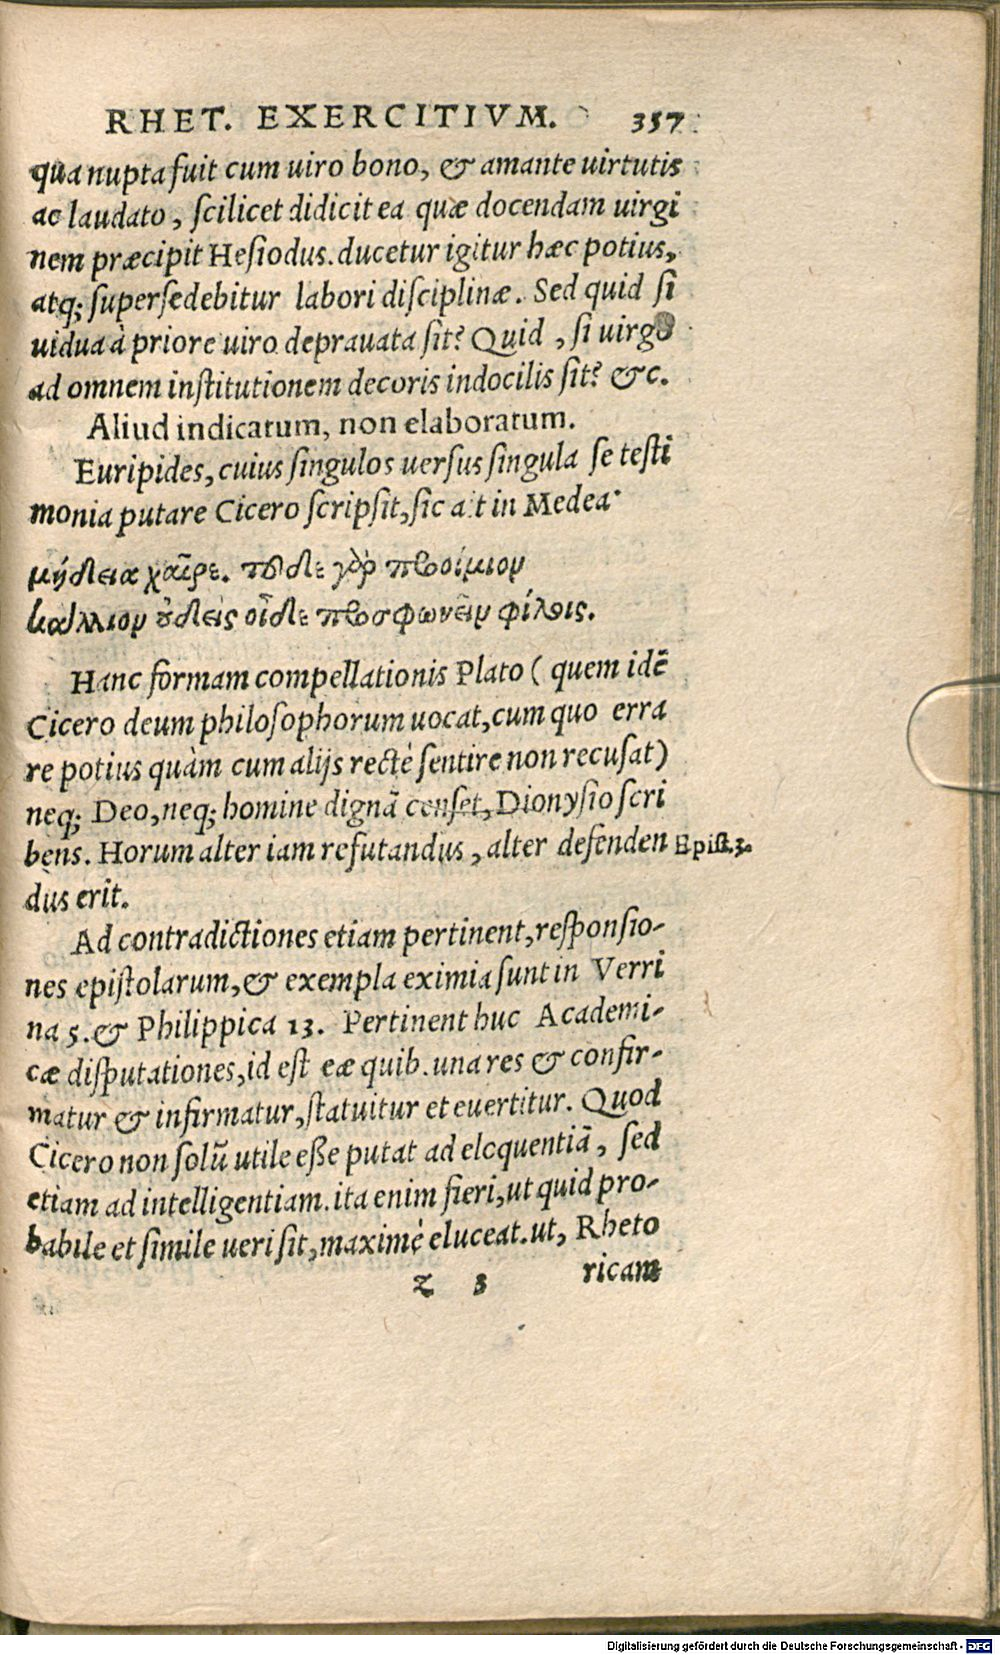 RHET. EXERCITIVM. 357
qua nupta fuit cum uiro bono, & amante uirtutis
ac laudato, ſcilicet didicit ea quæ docendam uirgi
nem præcipit Heſiodus. ducetur igitur hæc potius,
atq; ſuperſedebitur labori diſciplinæ. Sed quid ſi
uidua à priore uiro deprauata ſit? Quid, ſi uirgo
ad omnem inſtitutionem decoris indocilis ſit? &c.
Aliud indicatum, non elaboratum.
Euripides, cuius ſingulos uerſus ſingula ſe teſti
monia putare Cicero ſcripſit, ſic ait in Medea
μήδεια χαῖρε. τοῦδε γὰρ προοίμιον
κάλλιον οὐδεὶς οἶδε προσφωνεῖν φίλοις.
Hanc formam compellationis Plato (quem idē
Cicero deum philoſophorum uocat, cum quo erra
re potius quàm cum alijs rectè ſentire non recuſat)
neq; Deo, neq; homine dignā cenſet, Dionyſio ſcri
bens. Horum alter iam refutandus, alter defenden Epiſt. 3.
dus erit.
Ad contradictiones etiam pertinent, reſponſio-
nes epiſtolarum, & exempla eximia ſunt in Verri
na 5. & Philippica 13. Pertinent huc Academi-
cæ diſputationes, id eſt eæ quib. una res & confir-
matur & infirmatur, ſtatuitur et euertitur. Quod
Cicero non ſolū utile eſſe putat ad eloquentiā, ſed
etiam ad intelligentiam. ita enim fieri, ut quid pro-
babile et ſimile ueri ſit, maximè eluceat. ut, Rheto
z 3 ricam
Digitalisierung gefördert durch die Deutsche Forschungsgemeinschaft - DFG